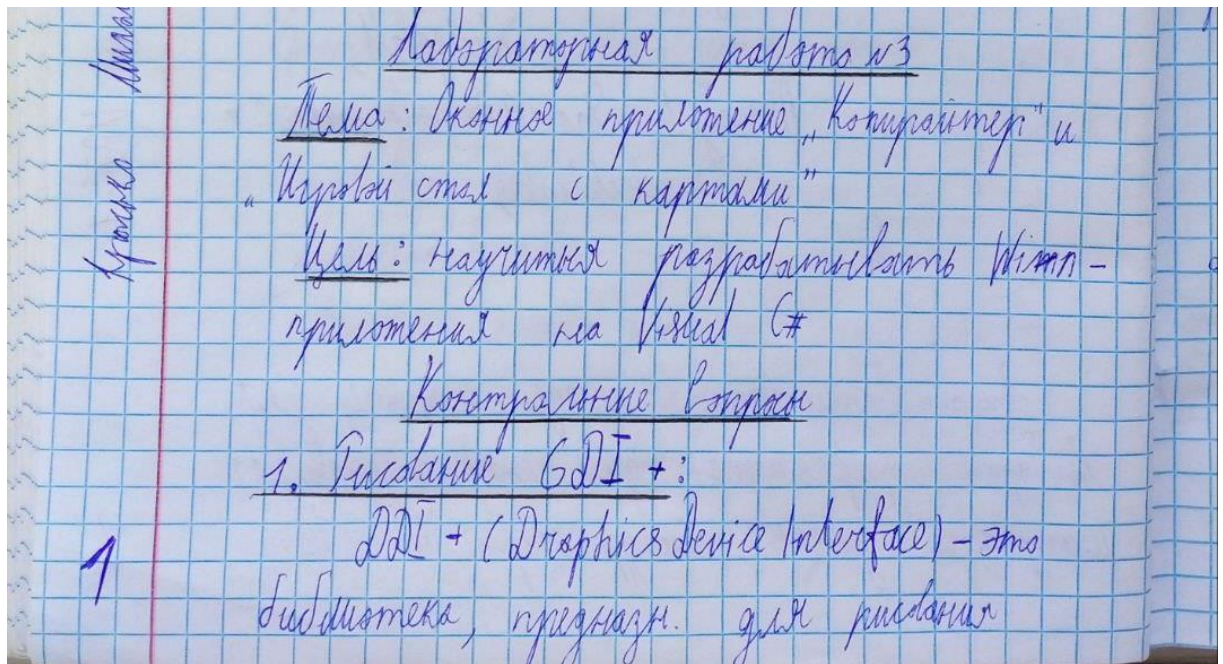 Лабораторная работа №3
Тема: Оконное приложение „Копирайтер" и
„Игровой стол с картами"
Цель: научиться разрабатывать Winn-
приложения на Visual C#
Контрольные вопросы
1. Рисование GDI+:
DDI + (Draphics Device Interface) – это
библиотека, предназн. для рисования
1